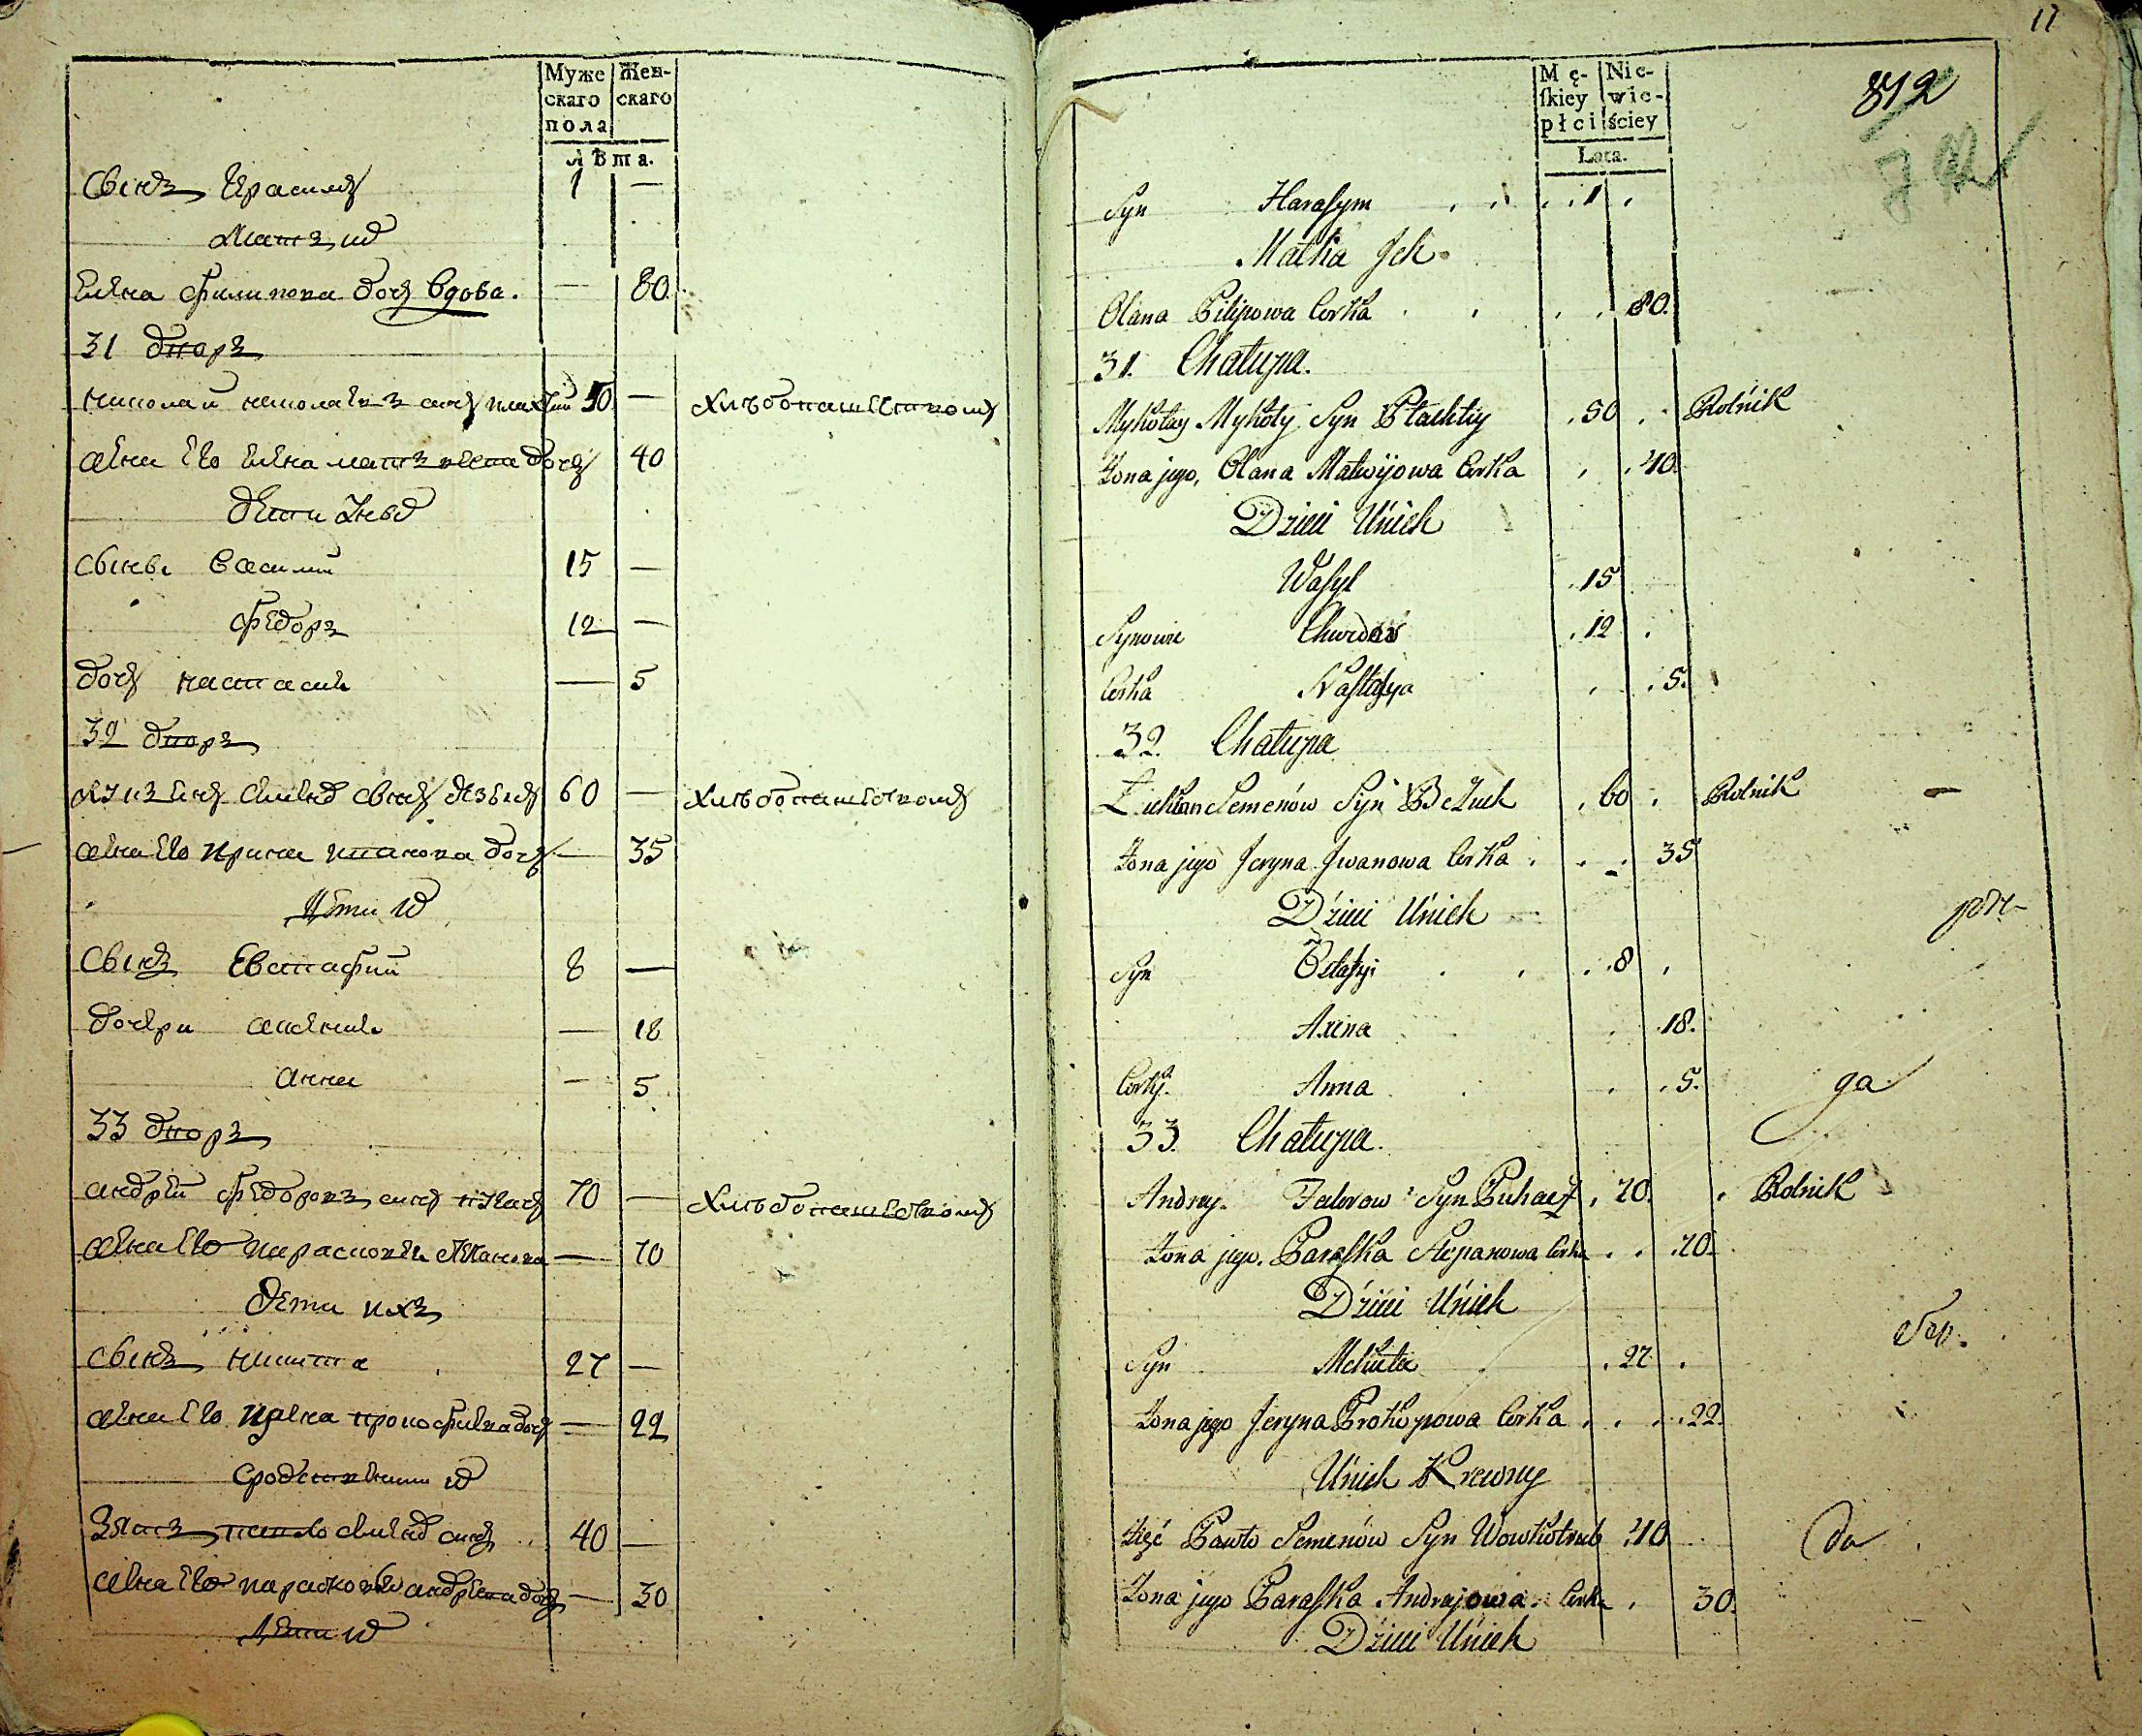 Муже Жен-
скаго скаго
пола
Лѣта.
Сынъ Герасимъ 1 —
Мать ихъ
Елена Филипова дочь вдова. — 80
31 дворъ
Николай Николаевъ сынъ Плахтий 50 — Хлѣбопашествомъ
Жена его Елена Матвѣева дочь 40
Дети ихъ
Сыновья Василий 15 —
Федоръ 12 —
Дочь Настасия — 5
32 дворъ
Семена сынъ 60 — Хлѣбопашествомъ
Жена его Ирина Иванова дочь — 35
Дети ихъ
Сынъ Евстафий 8 —
Дочери Аксения — 18
Анна — 5
33 дворъ
Андрей Федоровъ сынъ Пугачъ 70 — Хлѣбопашествомъ
Жена его Парасковья Степанова — 70
Дети ихъ
Сынъ Никита 27 —
Жена его Ирина дочь — 22
Сродственники ихъ
Зять Павло Семенов сынъ 40 —
Жена его Парасковья Андреева дочь — 30
Дети ихъ
17
Mę- Nie-
ſkiey wie-
płci ściey
Lata.
812
Syn Haraſym 1
Matka Ich
Olana Pilipowa Corka 80.
31. Chałupa.
Mykołay Mykoły Syn Płachtiy 50 Rolnik
Żona jego, Olana Matwijowa Corka 40.
Dzieci Unich
Waſyl 15
Synowie Chwedor 12
Corka Naſtaſya 5.
32. Chałupa
Łukian Semenów Syn 60 Rolnik
Żona jego Jeryna Jwanowa Corka 35
Dzieci Unich
Syn Ostaſyi 8
Axena 18.
Corky. Anna 5. ga
33. Chałupa.
Andrey. Fedorow Syn Puhacz 70. Rolnik
Żona jego. Paraſka Stepanowa Corka 70.
Dzieci Unich
Syn Mekieta 27
Żona jego Jeryna Prokopowa Corka 22.
Unich Krewny
Zięć Pawło Semenów Syn Wowkotrub 40 da
Żona jego Paraſka Andrejowa Corka 30.
Dzieci Unich